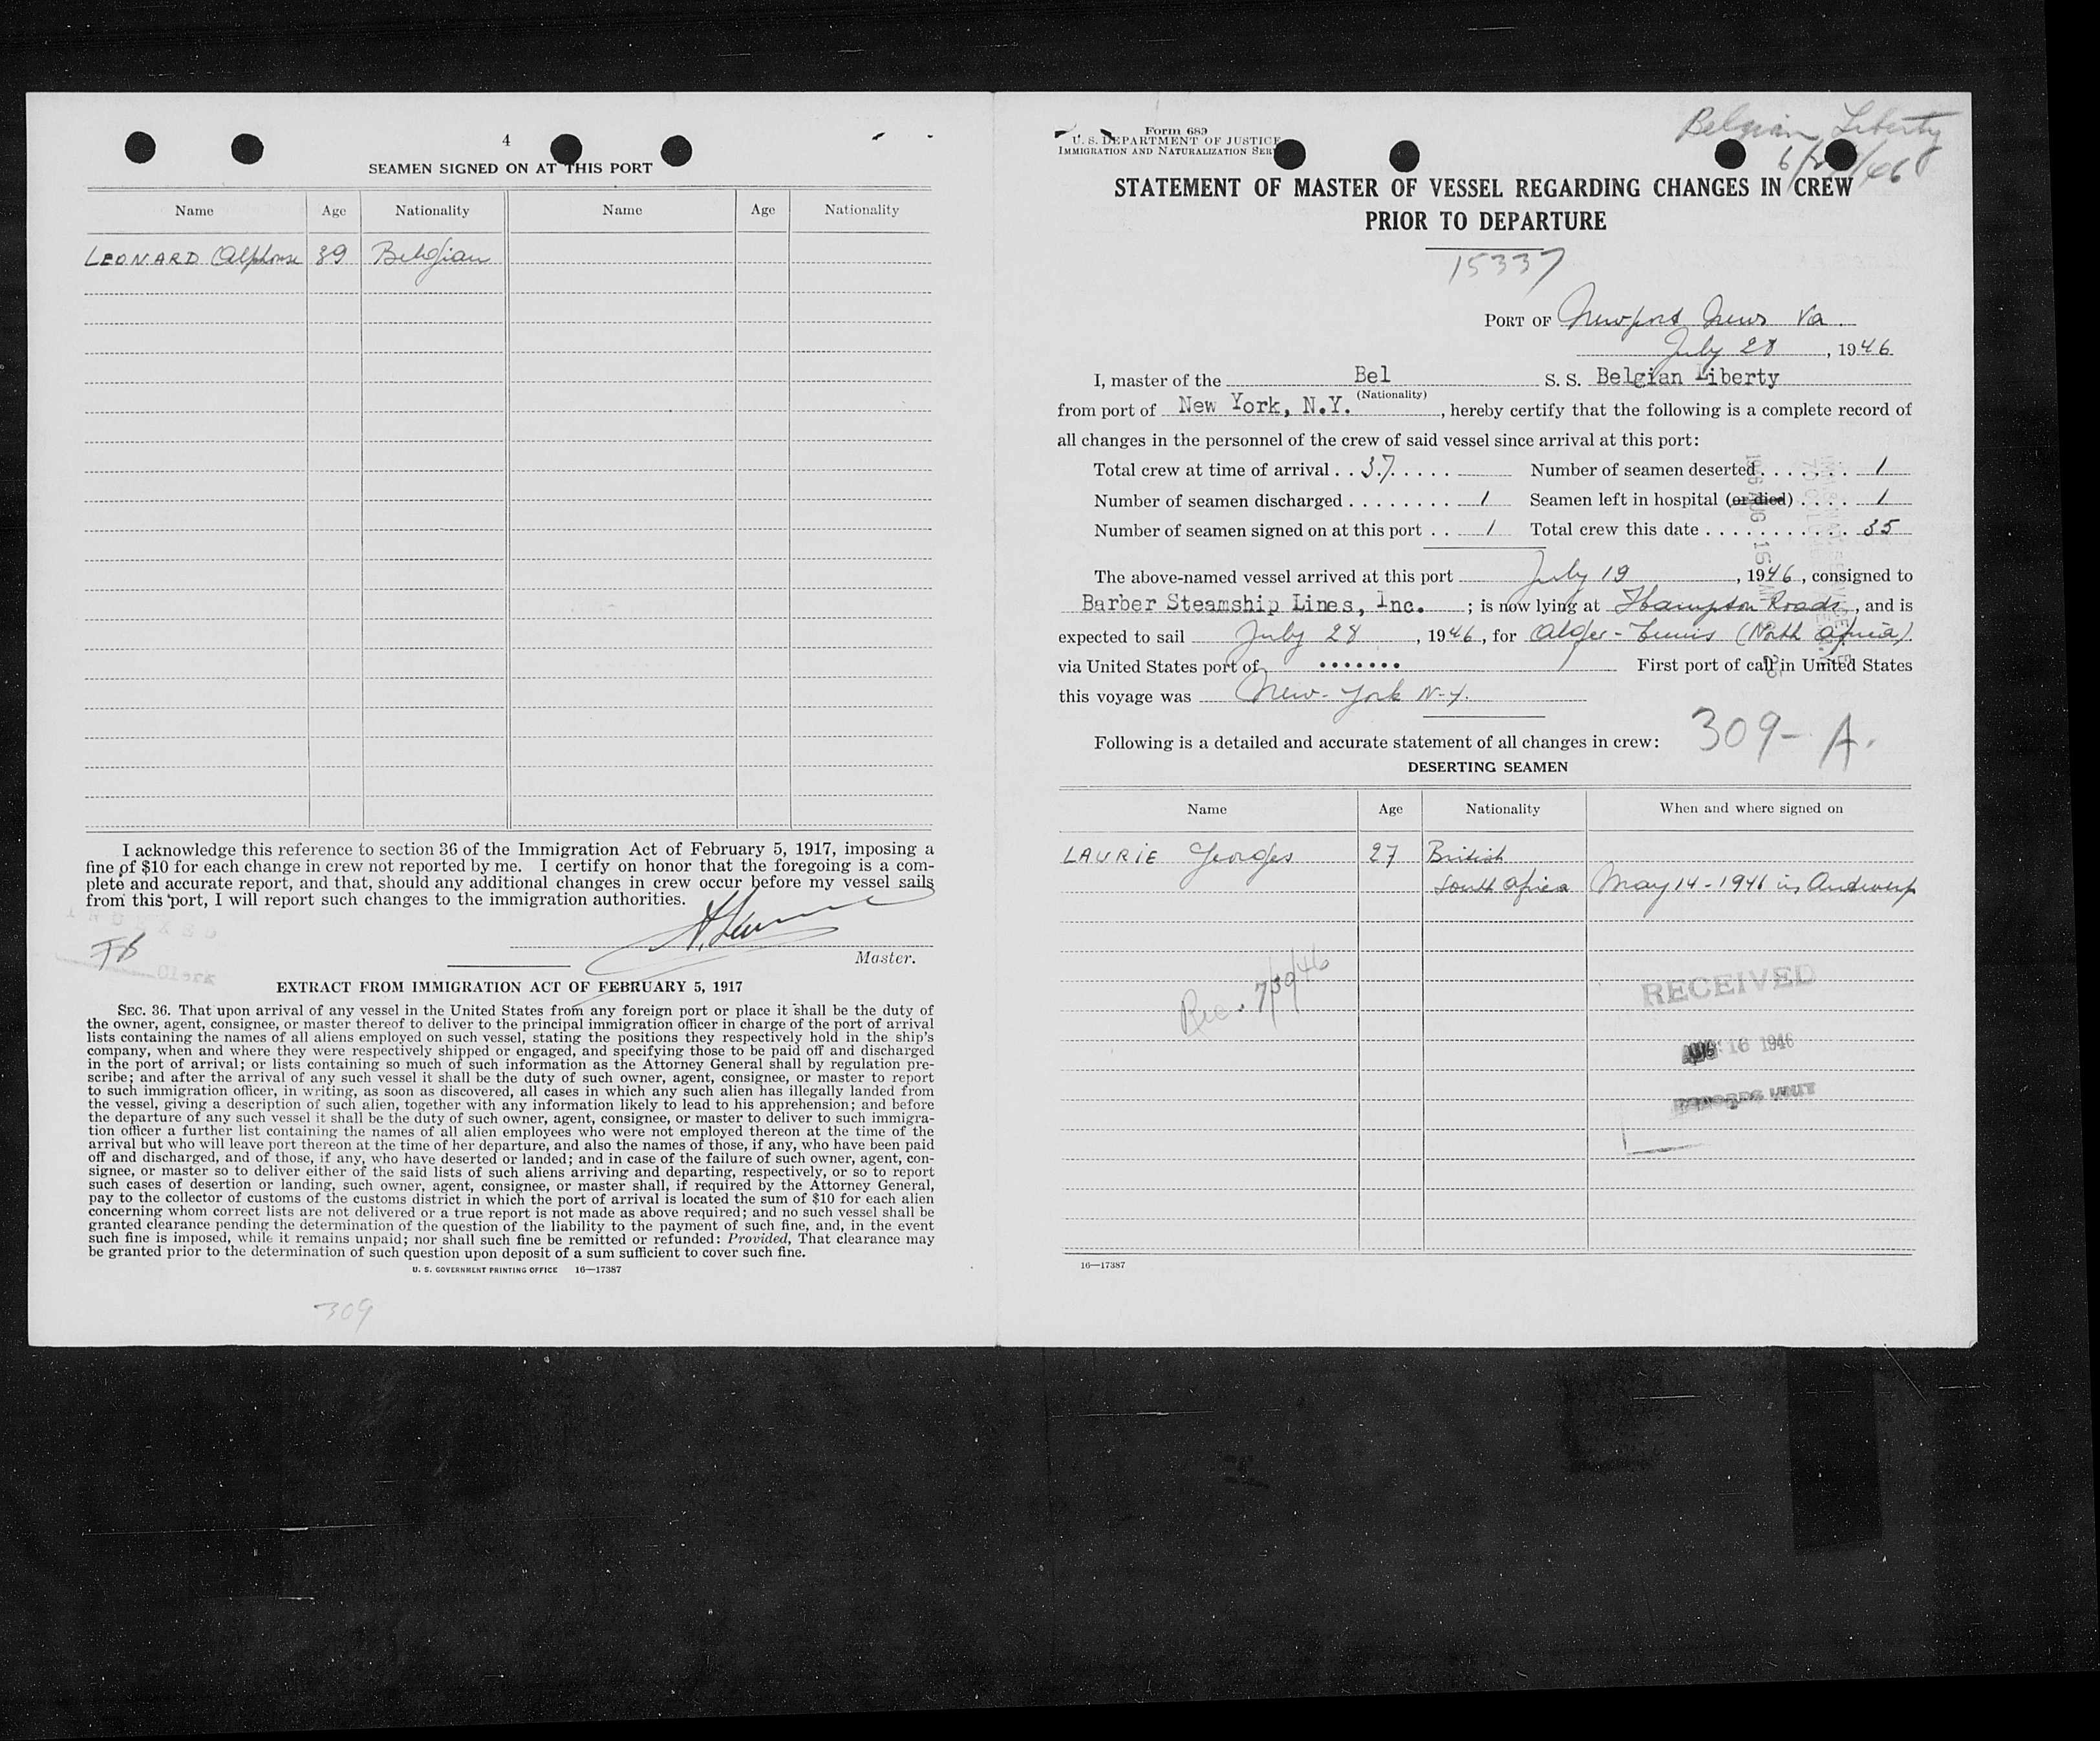 4
SEAMEN SIGNED ON AT THIS PORT
Name Age Nationality Name Age Nationality
LEONARD Alphonse 39 Belgian
I acknowledge this reference to section 36 of the Immigration Act of February 5, 1917, imposing a
fine of $10 for each change in crew not reported by me. I certify on honor that the foregoing is a com-
plete and accurate report, and that, should any additional changes in crew occur before my vessel sails
from this port, I will report such changes to the immigration authorities.
Master.
EXTRACT FROM IMMIGRATION ACT OF FEBRUARY 5, 1917
SEC. 36. That upon arrival of any vessel in the United States from any foreign port or place it shall be the duty of
the owner, agent, consignee, or master thereof to deliver to the principal immigration officer in charge of the port of arrival
lists containing the names of all aliens employed on such vessel, stating the positions they respectively hold in the ship's
company, when and where they were respectively shipped or engaged, and specifying those to be paid off and discharged
in the port of arrival; or lists containing so much of such information as the Attorney General shall by regulation pre-
scribe; and after the arrival of any such vessel it shall be the duty of such owner, agent, consignee, or master to report
to such immigration officer, in writing, as soon as discovered, all cases in which any such alien has illegally landed from
the vessel, giving a description of such alien, together with any information likely to lead to his apprehension; and before
the departure of any such vessel it shall be the duty of such owner, agent, consignee, or master to deliver to such immigra-
tion officer a further list containing the names of all alien employees who were not employed thereon at the time of the
arrival but who will leave port thereon at the time of her departure, and also the names of those, if any, who have been paid
off and discharged, and of those, if any, who have deserted or landed; and in case of the failure of such owner, agent, con-
signee, or master so to deliver either of the said lists of such aliens arriving and departing, respectively, or so to report
such cases of desertion or landing, such owner, agent, consignee, or master shall, if required by the Attorney General,
pay to the collector of customs of the customs district in which the port of arrival is located the sum of $10 for each alien
concerning whom correct lists are not delivered or a true report is not made as above required; and no such vessel shall be
granted clearance pending the determination of the question of the liability to the payment of such fine, and, in the event
such fine is imposed, while it remains unpaid; nor shall such fine be remitted or refunded: Provided, That clearance may
be granted prior to the determination of such question upon deposit of a sum sufficient to cover such fine.
U. S. GOVERNMENT PRINTING OFFICE 16—17387
309
Form 689
U. S. DEPARTMENT OF JUSTICE
IMMIGRATION AND NATURALIZATION SER
Belgian Liberty
STATEMENT OF MASTER OF VESSEL REGARDING CHANGES IN CREW
PRIOR TO DEPARTURE
15337
PORT OF Newport News Va.
July 28, 1946
I, master of the Bel S. S. Belgian Liberty
(Nationality)
from port of New York, N.Y., hereby certify that the following is a complete record of
all changes in the personnel of the crew of said vessel since arrival at this port:
Total crew at time of arrival . . 37 . . . . . Number of seamen deserted . . . . . . . 1
Number of seamen discharged . . . . . . . . . 1 Seamen left in hospital (or died) . . . . 1
Number of seamen signed on at this port . . 1 Total crew this date . . . . . . . . . . . . 35
The above-named vessel arrived at this port July 19, 1946, consigned to
Barber Steamship Lines, Inc. ; is now lying at Hampton Roads, and is
expected to sail July 28, 1946, for Alger - Tunis (North Africa)
via United States port of ....... First port of call in United States
this voyage was New-York N-Y.
Following is a detailed and accurate statement of all changes in crew: 309-A.
DESERTING SEAMEN
Name Age Nationality When and where signed on
LAURIE Georges 27 British
South Africa May 14-1946 in Antwerp
Rec. 7/30/46
RECEIVED
AUG 16 1946
RECORDS UNIT
16—17387